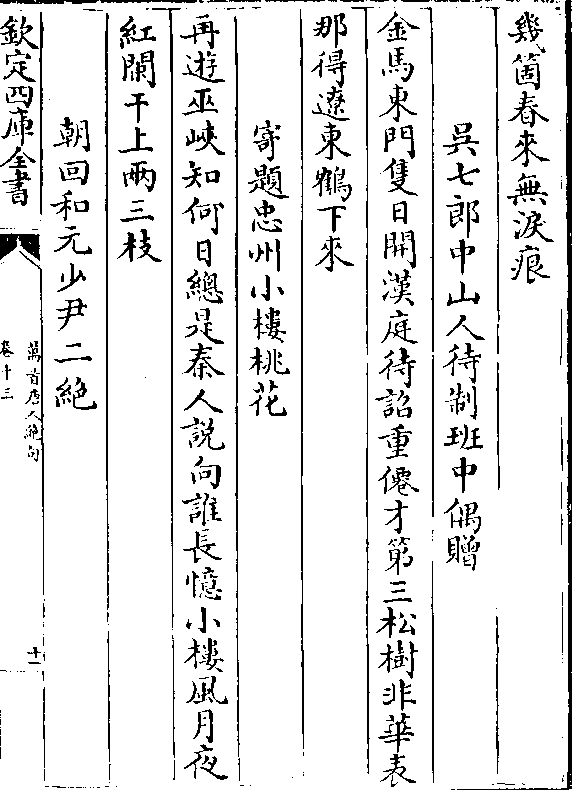 幾箇春來無淚痕
吳七郎中山人待制班中偶贈
金馬東門隻日開漢庭待詔重僊才第三松樹非華表
那得遼東鶴下來
寄題忠州小樓桃花
再遊巫峽知何日總是秦人說向誰長憶小樓風月夜
紅闌干上兩三枝
朝回和元少尹二絕
欽定四庫全書
萬首唐人絕句
卷十三
十一